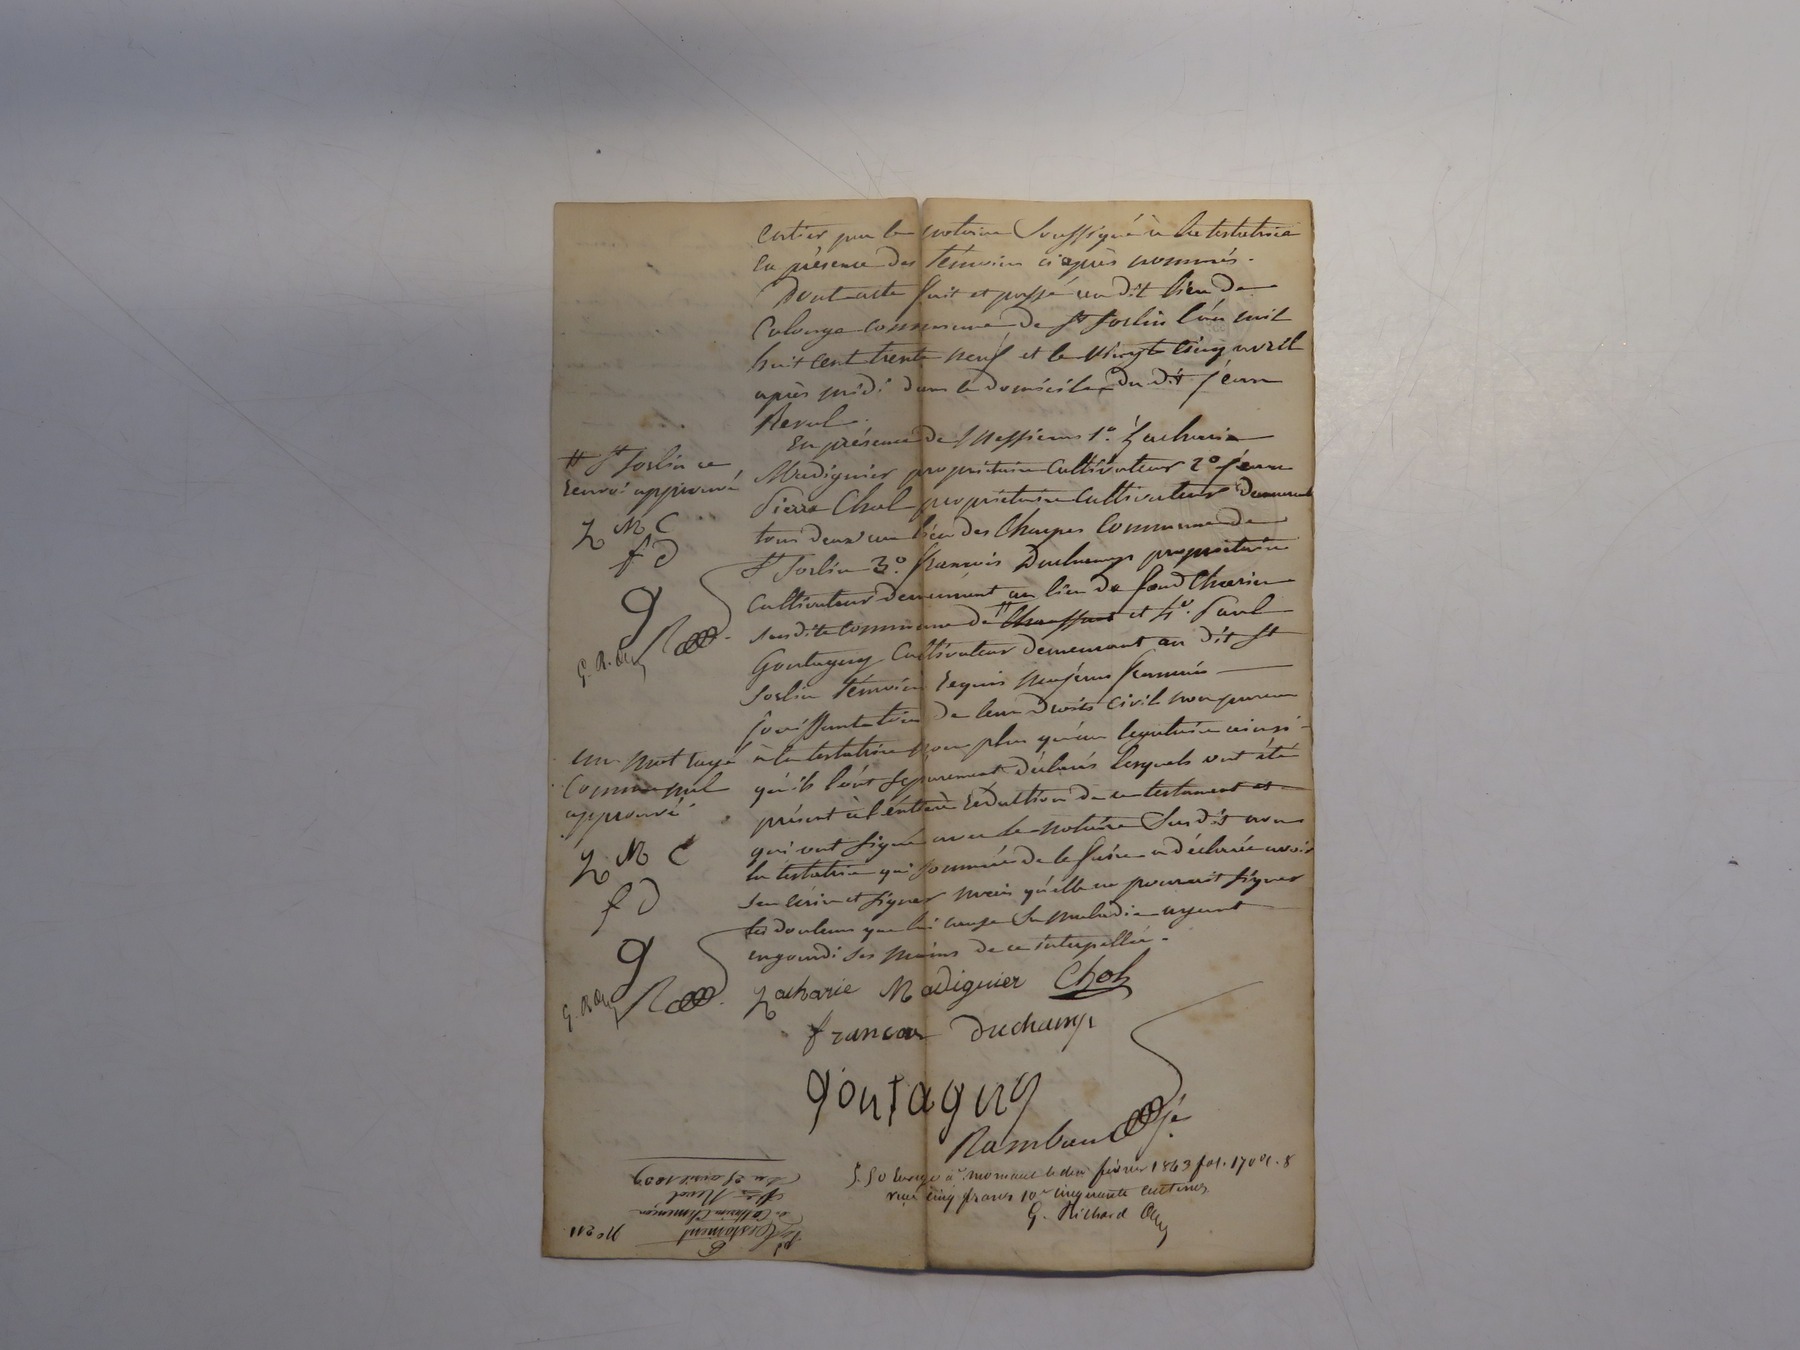 entier par le notaire Soussigné à la testatrice
en présence des témoins ci après nommés.
Dont acte fait et passé au dit lieu de
Colonge commune de St Sorlin l'an mil
huit cent trente neuf et le vingt cinq avril
après midi dans le domicile du dit Jean
Revol.
En présence de Messieurs 1º. Zacharie
Madignier propriétaire cultivateur 2º Jean
Pierre Chol propriétaire cultivateur demeurant
tous deux au lieu des Champs commune de
St Sorlin 3º. francois Duchamp propriétaire
cultivateur demeurant au lieu de
susdite commune de # Chauffant et 4º. Paul
Gontagny Cultivateur demeurant au dit St
Sorlin témoins requis majeurs francais
jouissant de leur droits civil non parens
à la testatrice non plus qu'au legataire ainsi
qu'ils l'ont séparement déclarés lesquels ont été
présent à l'entière rédaction de ce testament et
qui ont signé avec le notaire Susdit non
la testatrice qui sommée de le faire a déclarée avoir
seu écrire et signer mais qu'elle ne pouvait signer
les douleurs que lui cause sa maladie ayant
engourdi ses mains de ce interpellée.
# St Sorlin ce
renvoi approuvé
Z M C
f D
g
G. R.
un mot rayé
comme nul
approuvé
Z M C
f D
g
G. R.
Zacharie Madignier Chol
francois duchamp
gontagny
Rambaud
Mornant février 1843 fol. 170
cinq francs cinquante centimes
G. Richard
Nº 211
Testament
de
Revol
du 25 avril 1839